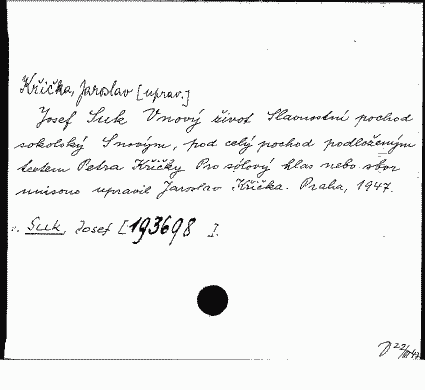 Křička, Jaroslav [uprav.]
Josef Suk V nový život Slavnostní pochod
sokolský S novým, pod celý pochod podloženým
textem Petra Křičky Pro sólový hlas nebo sbor
unisono upravil Jaroslav Křička. Praha, 1947.
v. Suk, Josef [193698 I.
22/III 47